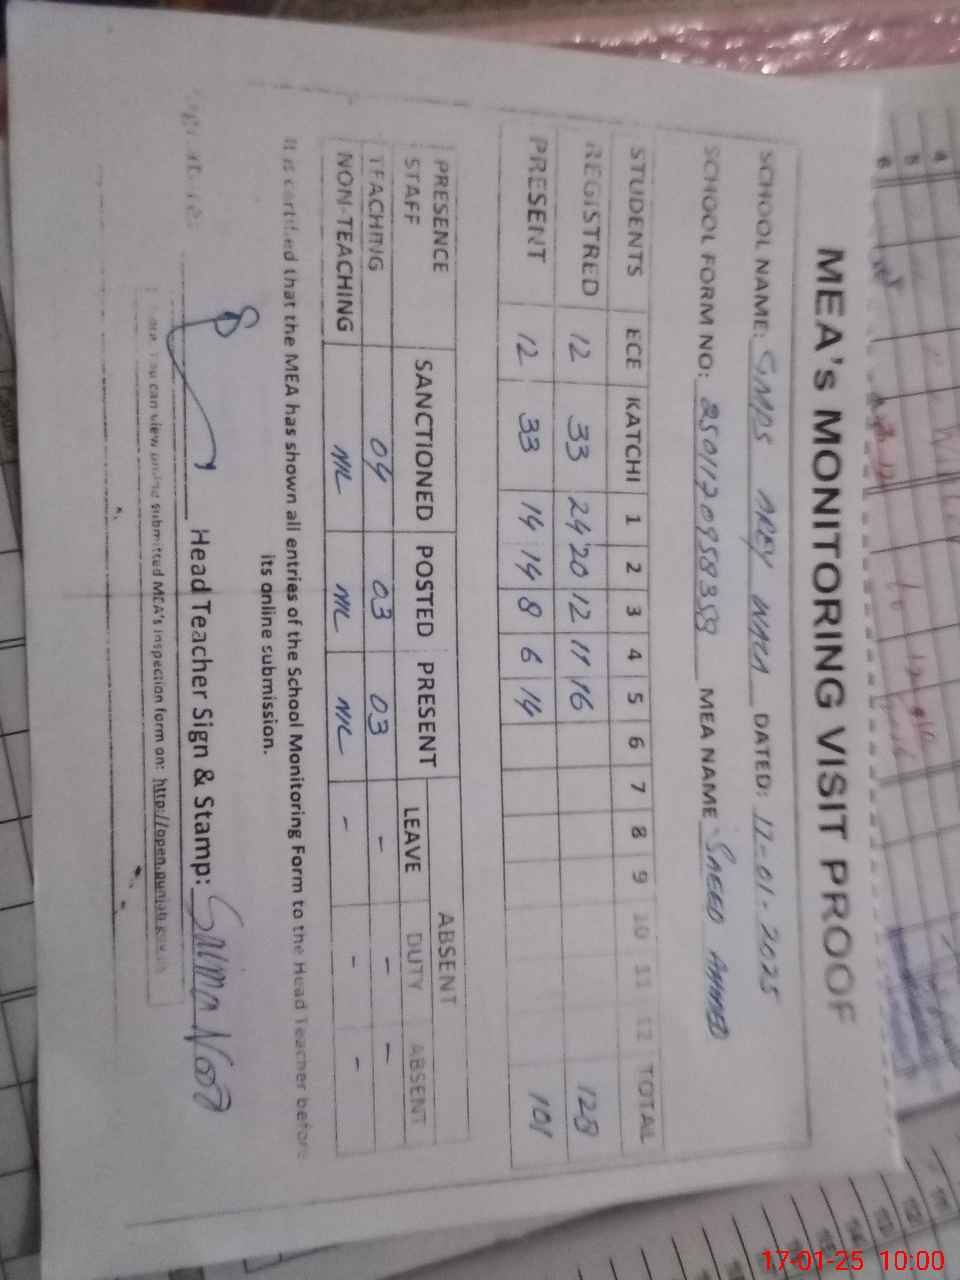 MEA's MONITORING VISIT PROOF
SCHOOL NAME: GMPS AREY WALA DATED: 17-01-2025
SCHOOL FORM NO: MEA NAME SAEED AHMED
STUDENTS ECE KATCHI 1 2 3 4 5 6 7 8 9 10 11 12 TOTAL
REGISTRED 12 33 24 20 12 11 16 128
PRESENT 12 33 14 14 8 6 14 101
PRESENCE ABSENT
STAFF SANCTIONED POSTED PRESENT LEAVE DUTY ABSENT
TEACHING 04 03 03 - - -
NON-TEACHING NIL NIL NIL - - -
It is certified that the MEA has shown all entries of the School Monitoring Form to the Head Teacher before
its online submission.
Signature Head Teacher Sign & Stamp: Saima
you can view online submitted MEA's inspection form on: http://open.punjab.gov.pk
17-01-25 10:00